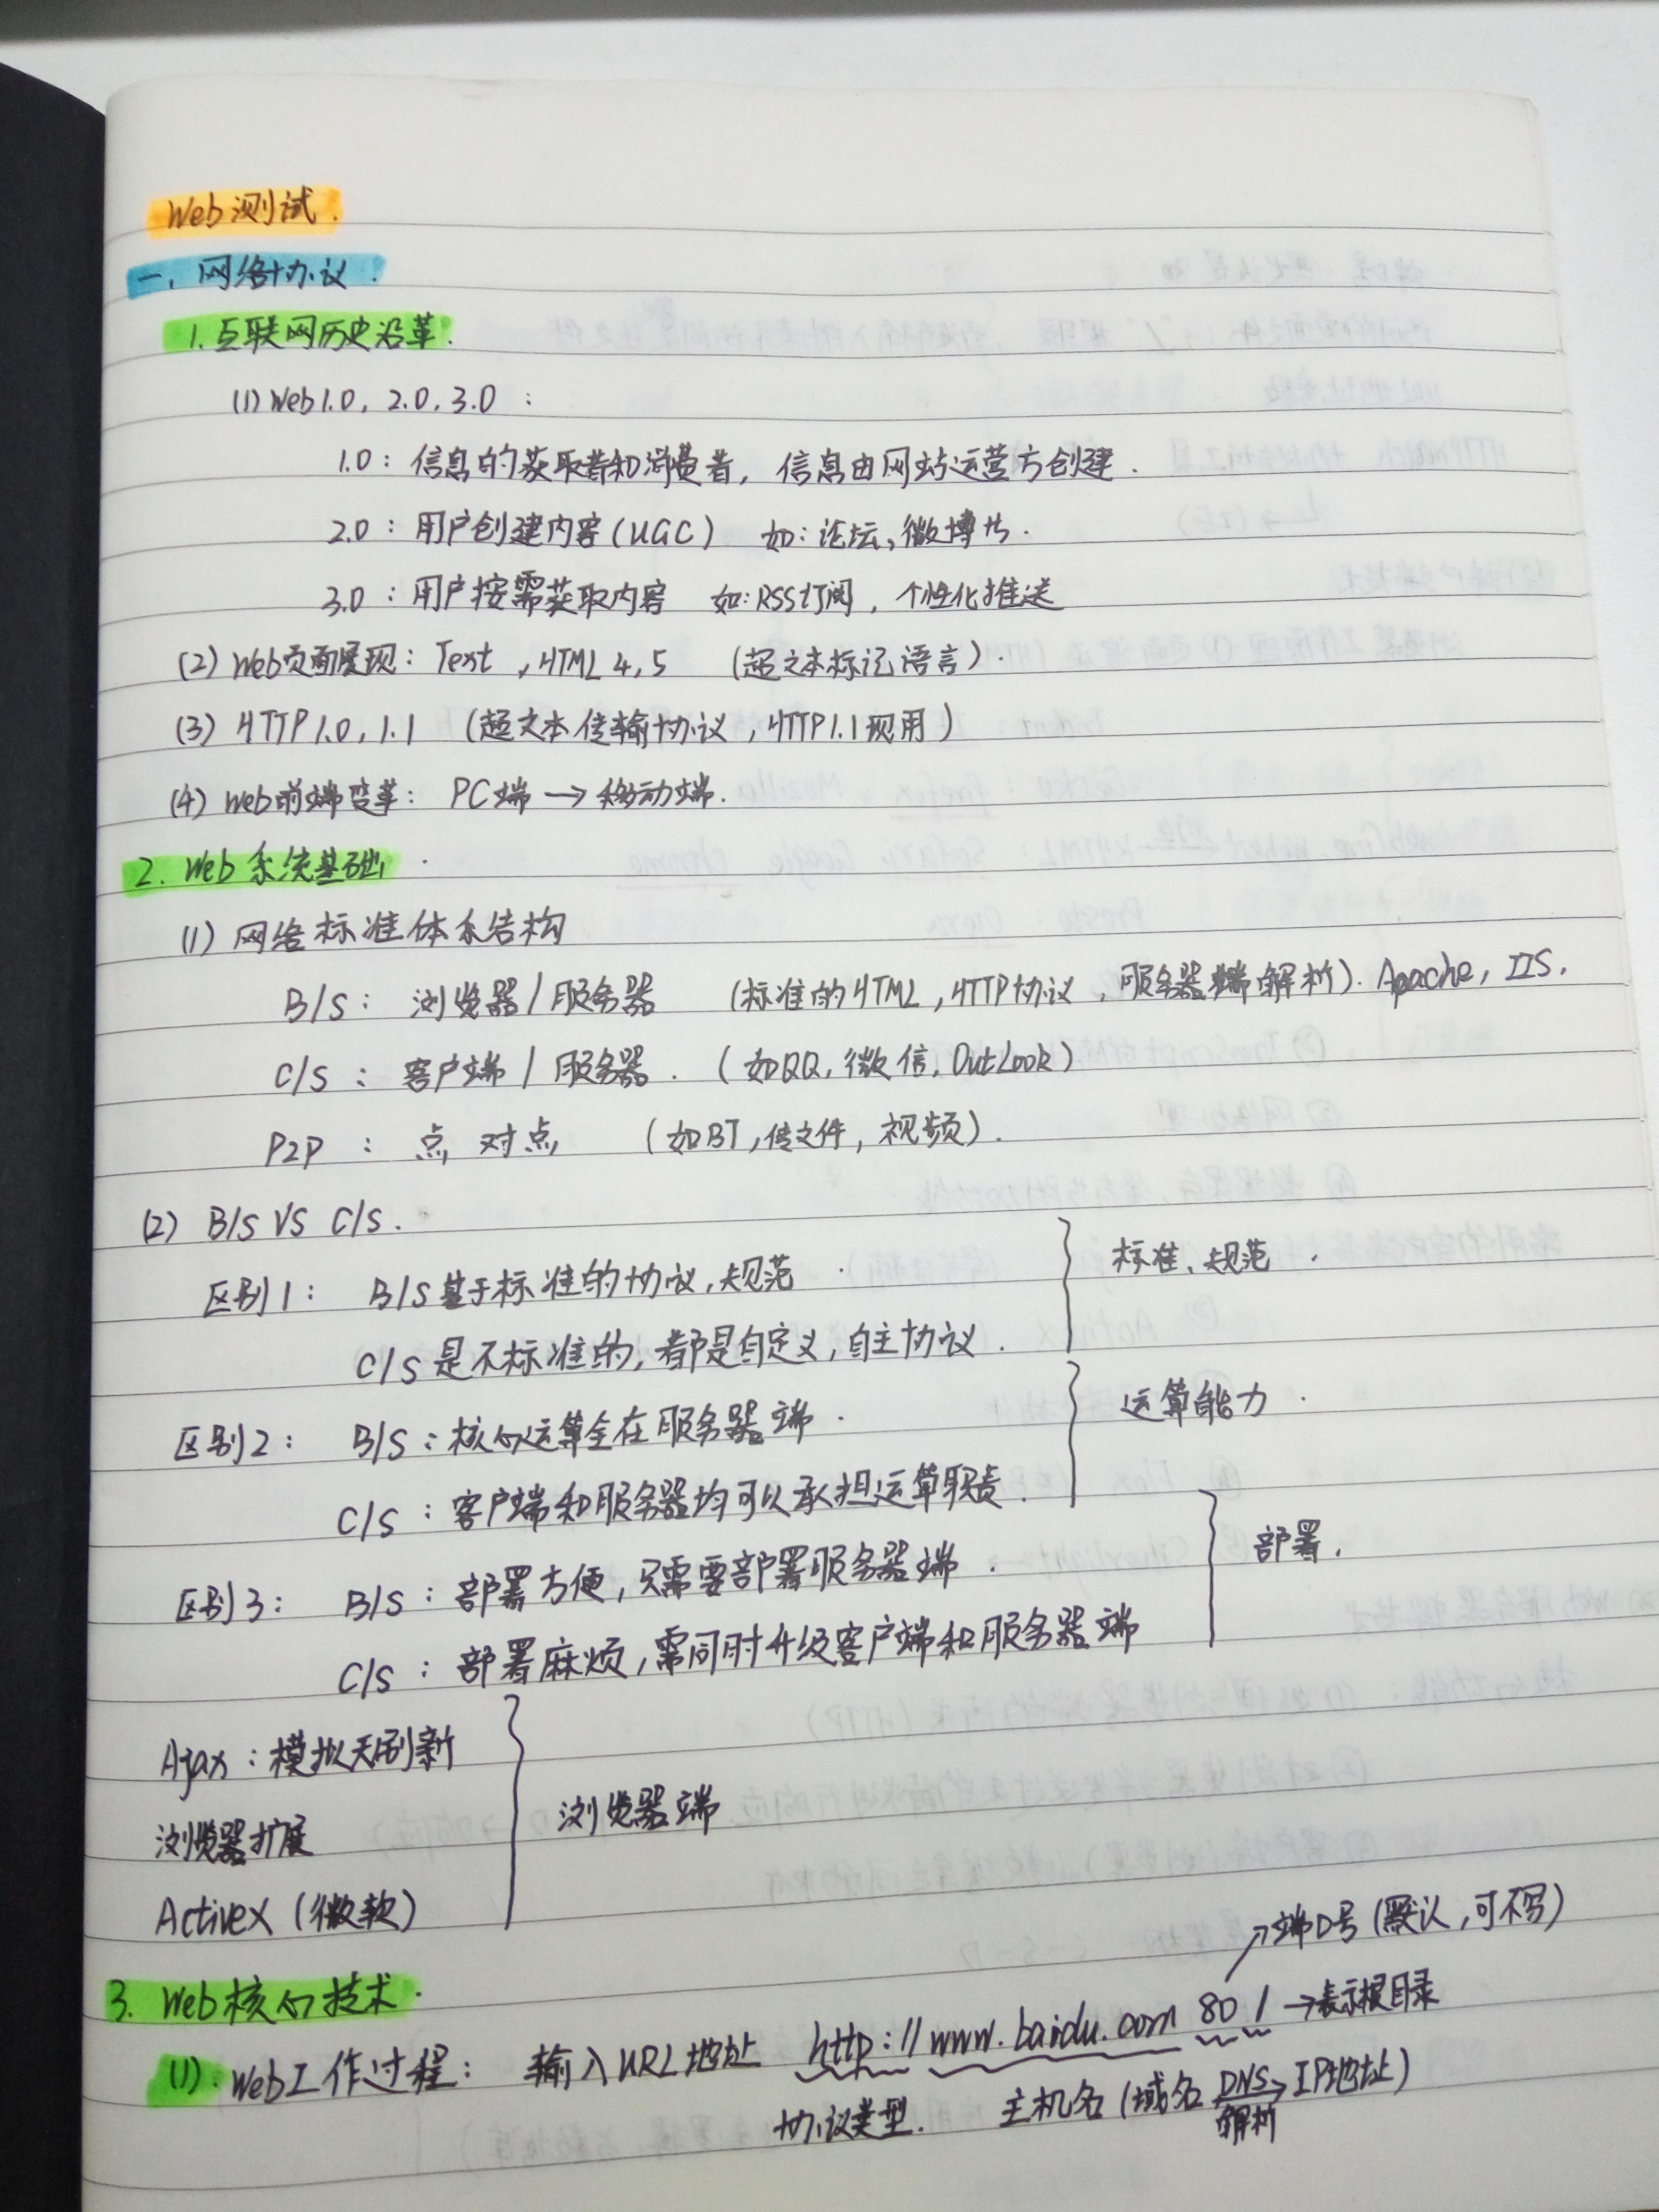 Web测试.
一、网络协议.
1.互联网历史沿革.
(1) Web1.0, 2.0, 3.0 :
1.0：信息的获取者和消费者，信息由网站运营方创建.
2.0：用户创建内容(UGC) 如：论坛，微博
3.0：用户按需获取内容 如：RSS订阅，个性化推送
(2) Web页面展现：Text , HTML 4, 5 (超文本标记语言).
(3) HTTP 1.0, 1.1 (超文本传输协议，HTTP1.1现用)
(4) Web前端变革：PC端 → 移动端.
2. Web系统基础.
(1) 网络标准体系结构
B/S：浏览器/服务器 (标准的HTML, HTTP协议，服务器端解析). Apache, IIS.
C/S：客户端/服务器. (如QQ, 微信, OutLook)
P2P：点对点 (如BT, 传文件, 视频).
(2) B/S VS C/S.
区别1：B/S基于标准的协议，规范
标准、规范.
C/S是不标准的，都是自定义，自主协议.
区别2：B/S：核心运算全在服务器端.
运算能力.
C/S：客户端和服务器均可以承担运算职责.
区别3：B/S：部署方便，只需要部署服务器端.
部署.
C/S：部署麻烦，需同时升级客户端和服务器端
Ajax：模拟无刷新
浏览器扩展
浏览器端
ActiveX (微软)
→端口号(默认，可不写)
3. Web核心技术.
(1). Web工作过程：输入URL地址 http://www.baidu.com 80 / →表示根目录
协议类型. 主机名(域名 DNS解析→ IP地址)